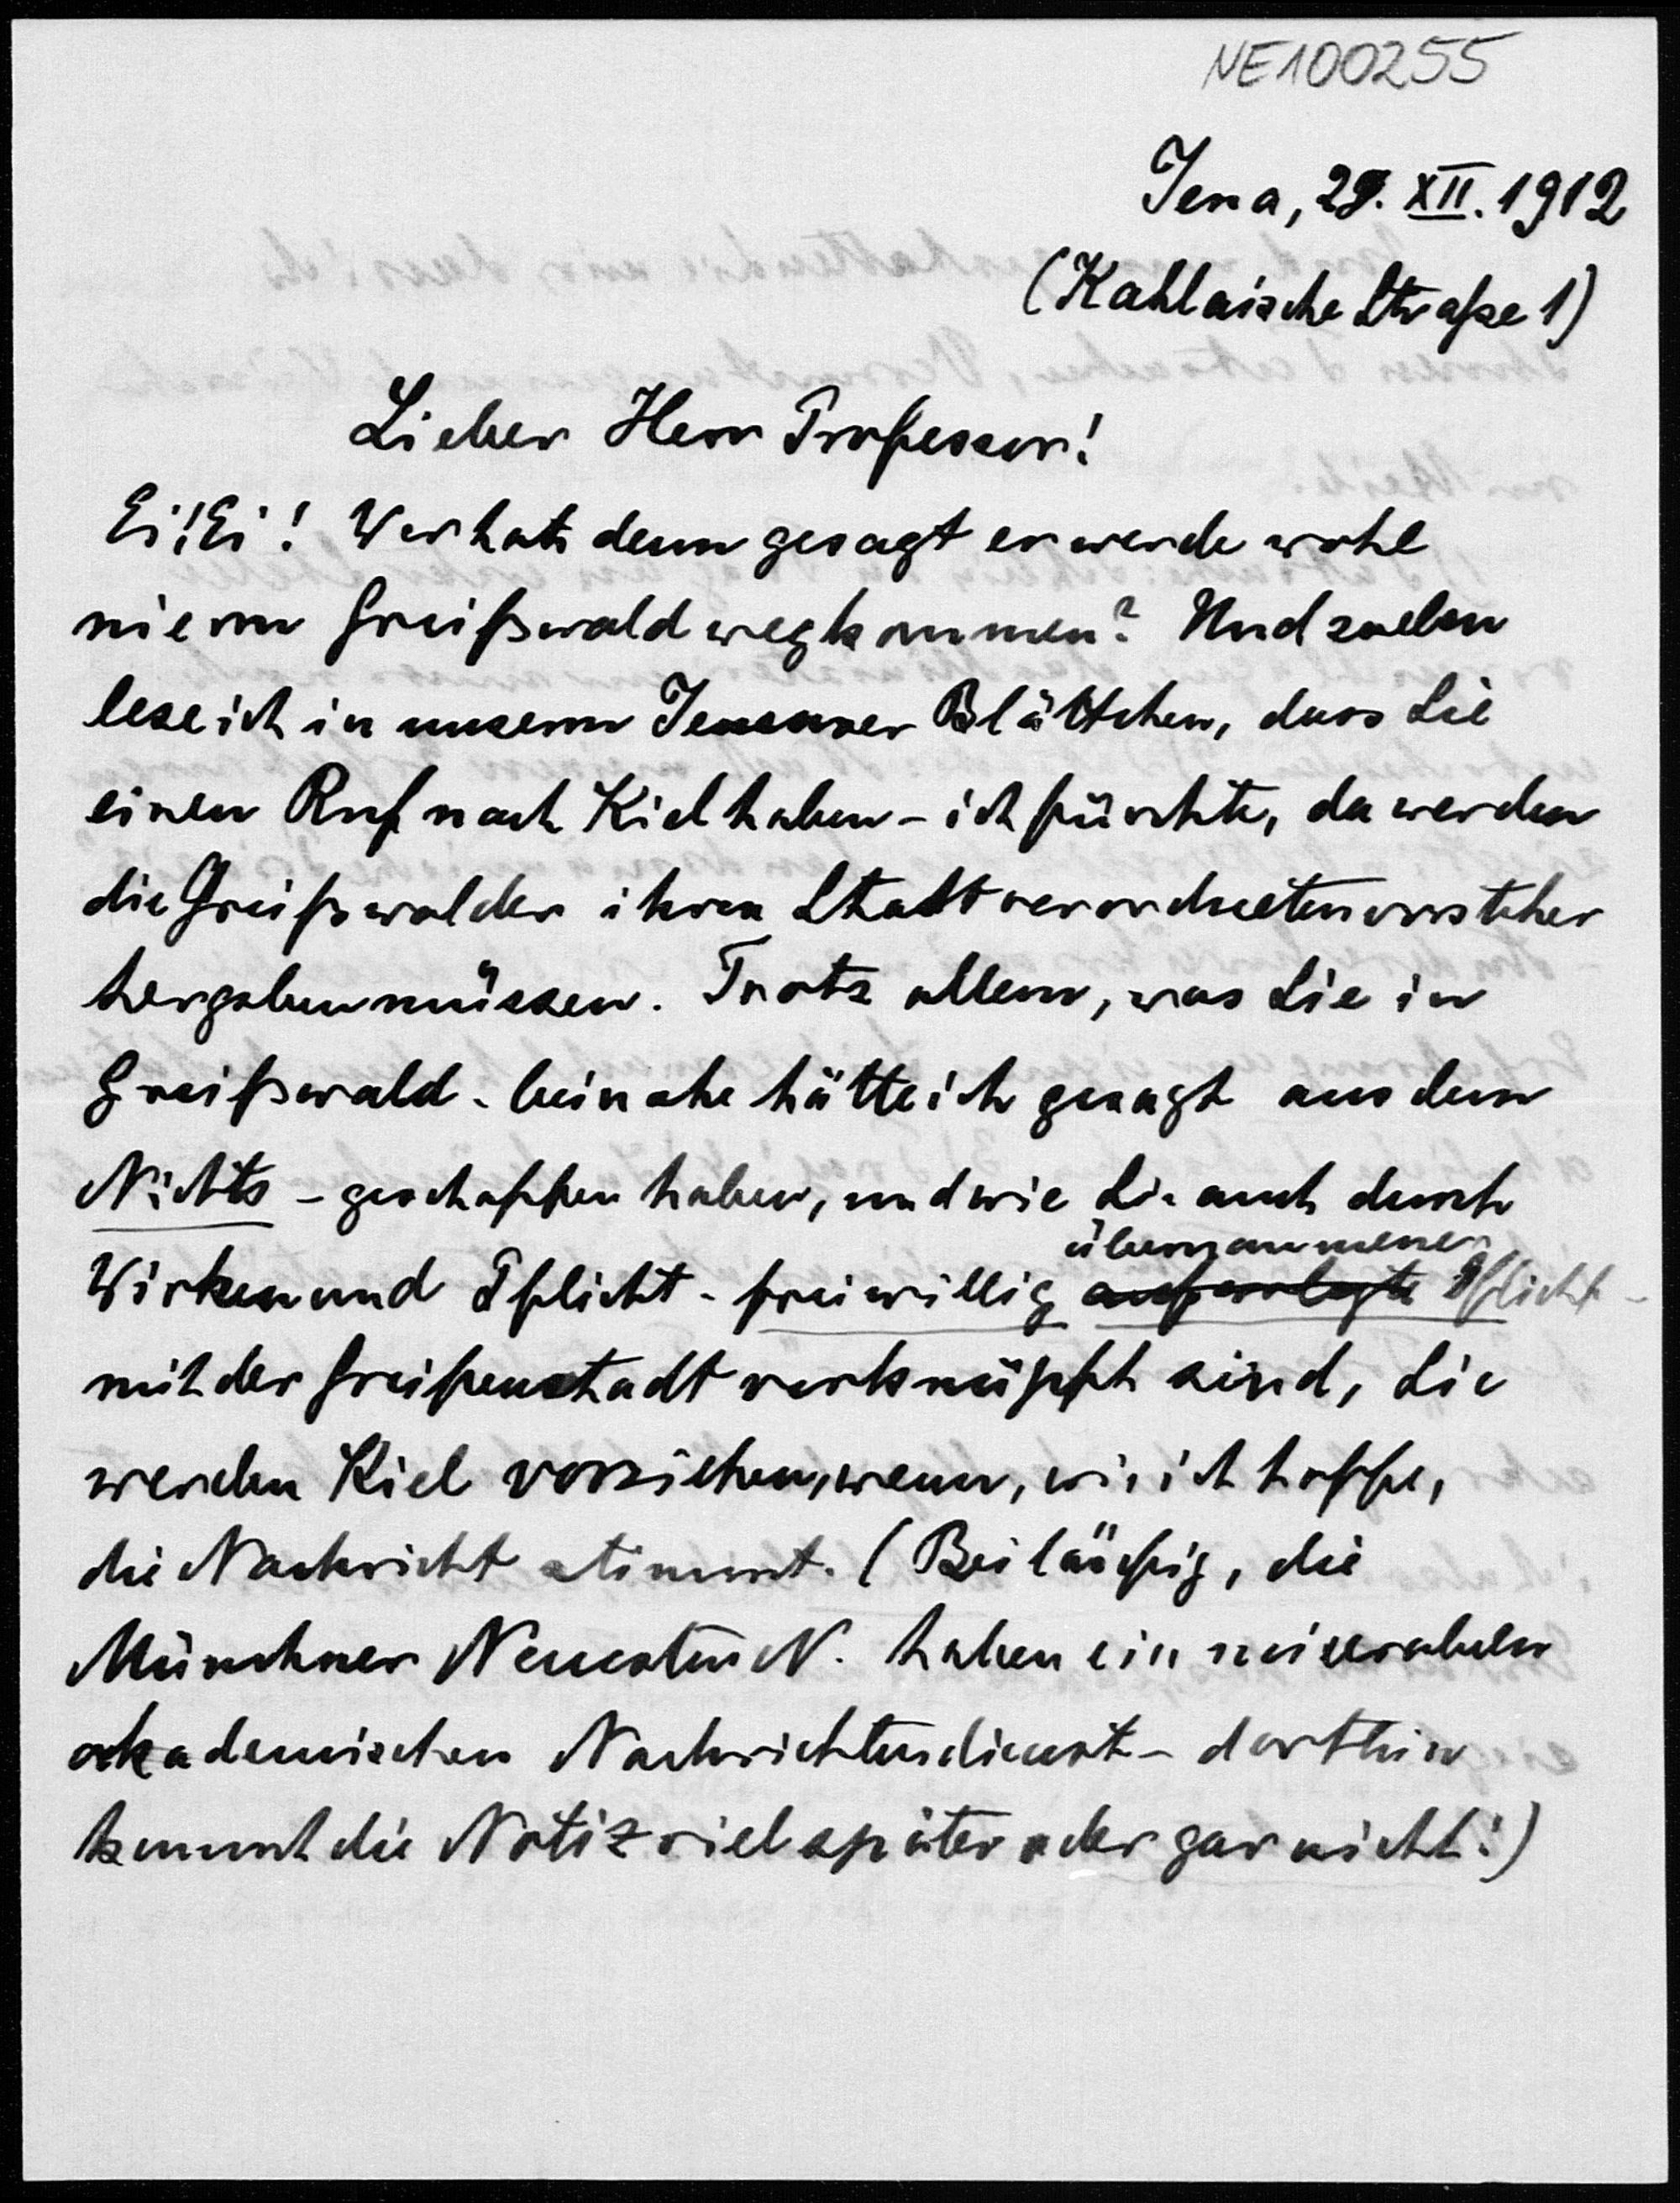 NE100255
Jena, 29. XII. 1912
(Kahlaische Straße 1)
Lieber Herr Professor!
Ei! Ei! Wer hat denn gesagt er werde wohl
nie von Greifswald wegkommen? Und soeben
lese ich in unserm Jenenser Blättchen, dass Sie
einen Ruf nach Kiel haben - ich fürchte, da werden
die Greifswalder ihren Stadtverordnetenvorsteher
hergeben müssen. Trotz allem, was Sie in
Greifswald - beinahe hätte ich gesagt aus dem
Nichts - geschaffen haben, und wie Sie auch durch
übernommener
Wirken und Pflicht - freiwillig auferlegte Pflicht -
mit der Greifenstadt verknüpft sind, Sie
werden Kiel vorziehen, wenn, wie ich hoffe,
die Nachricht stimmt. (Beiläufig, die
Münchner Neuesten N. haben ein miserabeln
akademischen Nachrichtendienst - dorthin
kommt die Notiz viel später oder gar nicht!)